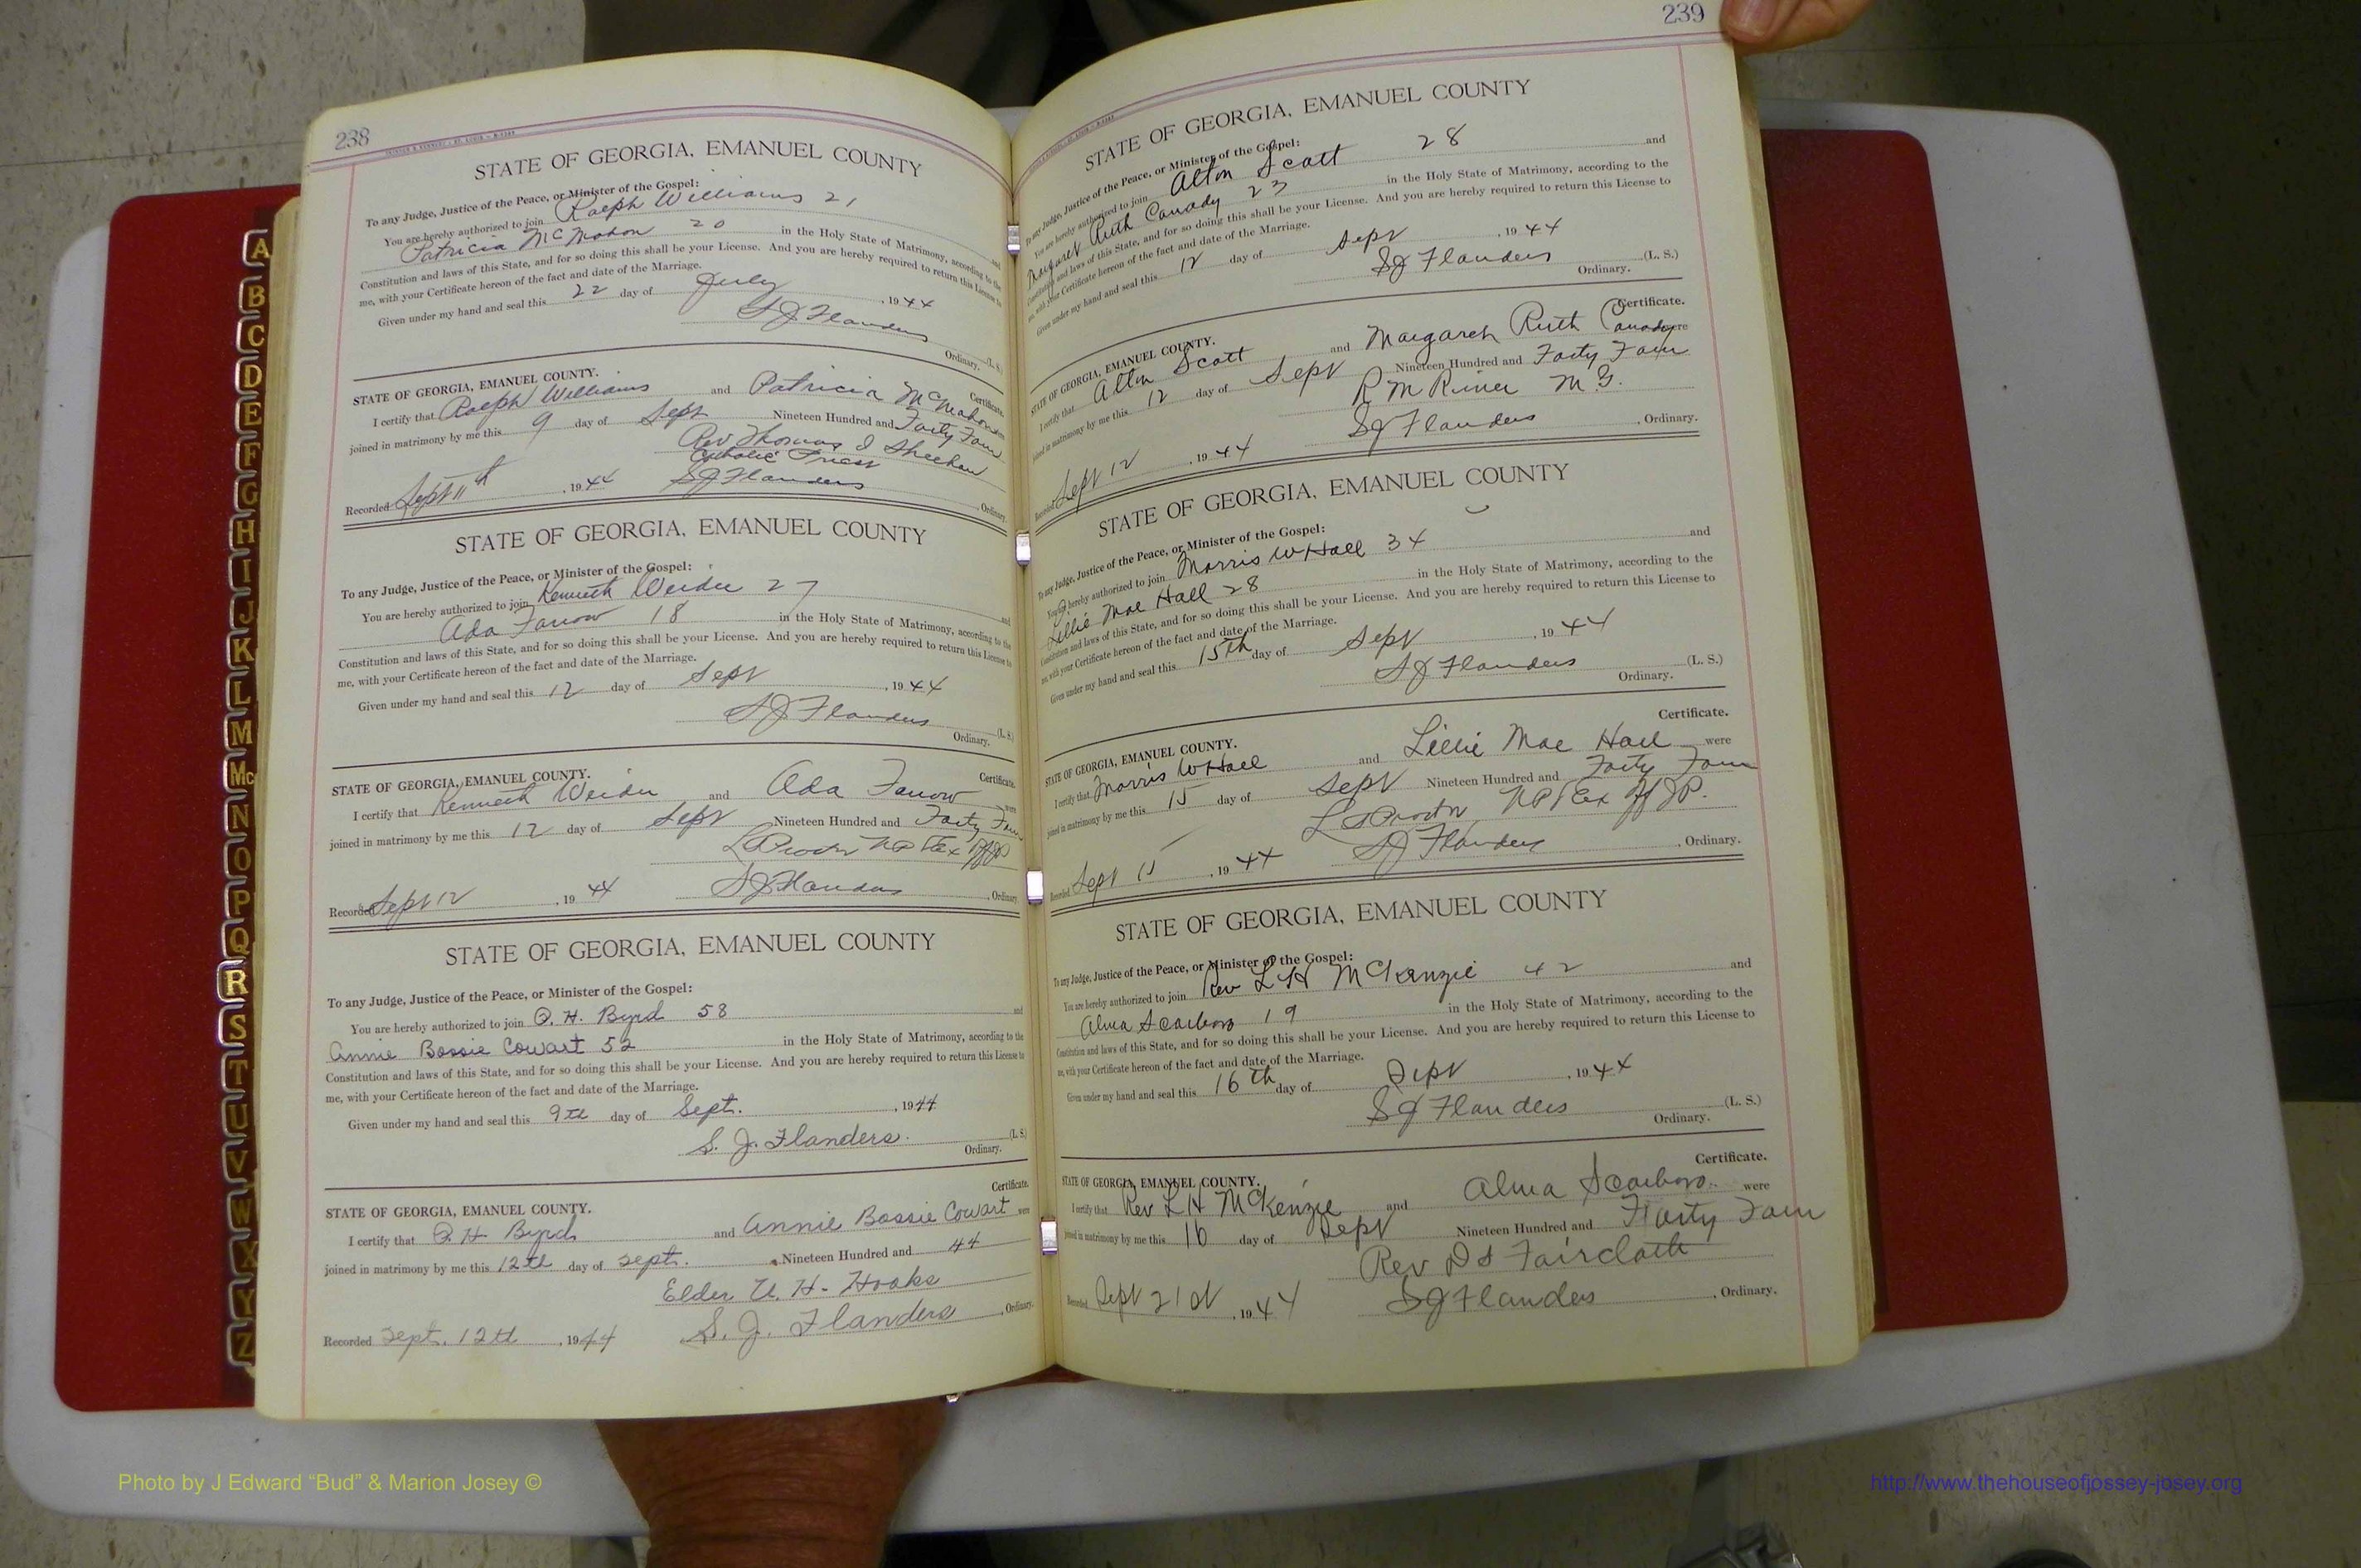 238
STATE OF GEORGIA, EMANUEL COUNTY
To any Judge, Justice of the Peace, or Minister of the Gospel:
You are hereby authorized to join Ralph Williams 21 and
Patricia McMahon 20 in the Holy State of Matrimony, according to the
Constitution and laws of this State, and for so doing this shall be your License. And you are hereby required to return this License to
me, with your Certificate hereon of the fact and date of the Marriage.
Given under my hand and seal this 22 day of July, 1944
SJ Flanders (L. S.)
Ordinary.
STATE OF GEORGIA, EMANUEL COUNTY. Certificate.
I certify that Ralph Williams and Patricia McMahon were
joined in matrimony by me this 9 day of Sept Nineteen Hundred and Forty Four
Rev Thomas J Sheehan
Catholic Priest
Recorded Sept 11th, 1944 SJ Flanders, Ordinary.
STATE OF GEORGIA, EMANUEL COUNTY
To any Judge, Justice of the Peace, or Minister of the Gospel:
You are hereby authorized to join Kenneth 27 and
Ada Farrow 18 in the Holy State of Matrimony, according to the
Constitution and laws of this State, and for so doing this shall be your License. And you are hereby required to return this License to
me, with your Certificate hereon of the fact and date of the Marriage.
Given under my hand and seal this 12 day of Sept, 1944
SJ Flanders (L. S.)
Ordinary.
STATE OF GEORGIA, EMANUEL COUNTY. Certificate.
I certify that Kenneth and Ada Farrow were
joined in matrimony by me this 12 day of Sept Nineteen Hundred and Forty Four
NP & Ex Off JP
Recorded Sept 12, 1944 SJ Flanders, Ordinary.
STATE OF GEORGIA, EMANUEL COUNTY
To any Judge, Justice of the Peace, or Minister of the Gospel:
You are hereby authorized to join Q. H. Byrd 58 and
Annie Bossie Cowart 52 in the Holy State of Matrimony, according to the
Constitution and laws of this State, and for so doing this shall be your License. And you are hereby required to return this License to
me, with your Certificate hereon of the fact and date of the Marriage.
Given under my hand and seal this 9th day of Sept., 1944
S. J. Flanders. (L. S.)
Ordinary.
Certificate.
STATE OF GEORGIA, EMANUEL COUNTY.
I certify that Q. H. Byrd and Annie Bossie Cowart were
joined in matrimony by me this 12th day of Sept. Nineteen Hundred and 44
Elder U. H. Hooks
Recorded Sept. 12th, 1944 S. J. Flanders, Ordinary.
239
STATE OF GEORGIA, EMANUEL COUNTY
To any Judge, Justice of the Peace, or Minister of the Gospel:
You are hereby authorized to join Alton Scott 28 and
Margaret Ruth Canady 23 in the Holy State of Matrimony, according to the
Constitution and laws of this State, and for so doing this shall be your License. And you are hereby required to return this License to
me, with your Certificate hereon of the fact and date of the Marriage.
Given under my hand and seal this 12 day of Sept, 1944
SJ Flanders (L. S.)
Ordinary.
Certificate.
STATE OF GEORGIA, EMANUEL COUNTY.
I certify that Alton Scott and Margaret Ruth Canady were
joined in matrimony by me this 12 day of Sept Nineteen Hundred and Forty Four
R M Riner M G.
Recorded Sept 12, 1944 SJ Flanders, Ordinary.
STATE OF GEORGIA, EMANUEL COUNTY
To any Judge, Justice of the Peace, or Minister of the Gospel:
You are hereby authorized to join Morris W Hall 34 and
Lillie Mae Hall 28 in the Holy State of Matrimony, according to the
Constitution and laws of this State, and for so doing this shall be your License. And you are hereby required to return this License to
me, with your Certificate hereon of the fact and date of the Marriage.
Given under my hand and seal this 15th day of Sept, 1944
SJ Flanders (L. S.)
Ordinary.
Certificate.
STATE OF GEORGIA, EMANUEL COUNTY.
I certify that Morris W Hall and Lillie Mae Hall were
joined in matrimony by me this 15 day of Sept Nineteen Hundred and Forty Four
NP & Ex Off JP.
Recorded Sept 15, 1944 SJ Flanders, Ordinary.
STATE OF GEORGIA, EMANUEL COUNTY
To any Judge, Justice of the Peace, or Minister of the Gospel:
You are hereby authorized to join Rev L H McKenzie 42 and
Alma Scarboro 19 in the Holy State of Matrimony, according to the
Constitution and laws of this State, and for so doing this shall be your License. And you are hereby required to return this License to
me, with your Certificate hereon of the fact and date of the Marriage.
Given under my hand and seal this 16th day of Sept, 1944
SJ Flanders (L. S.)
Ordinary.
Certificate.
STATE OF GEORGIA, EMANUEL COUNTY.
I certify that Rev L H McKenzie and Alma Scarboro were
joined in matrimony by me this 16 day of Sept Nineteen Hundred and Forty Four
Rev D S Faircloth
Recorded Sept 21st, 1944 SJ Flanders, Ordinary.
A
B
C
D
E
F
G
H
I
J
K
L
M
Mc
N
O
P
Q
R
S
T
U
V
W
X
Y
Z
Photo by J Edward “Bud” & Marion Josey ©
http://www.thehouseofjossey-josey.org